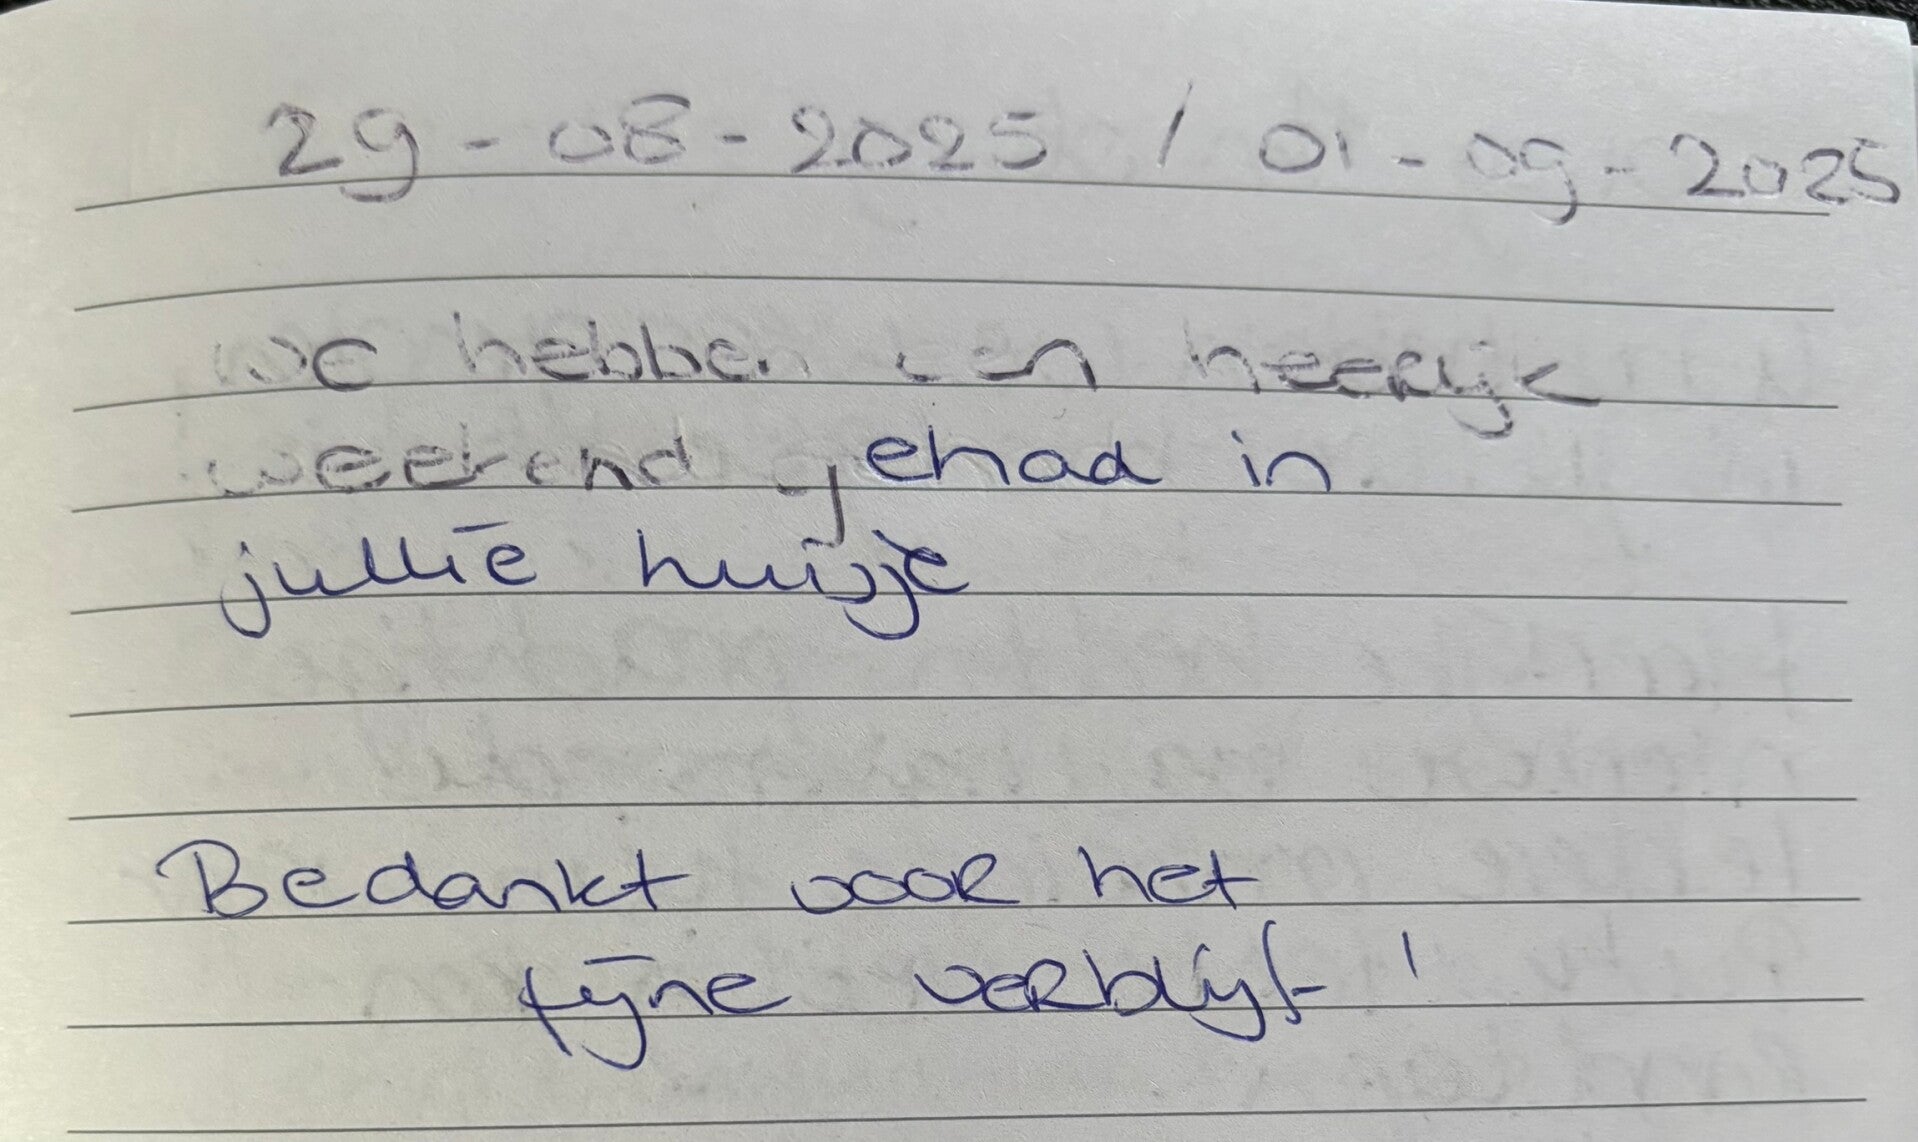 29-08-2025 / 01-09-2025
we hebben een heerijk
weekend gehad in
jullie huisje
Bedankt voor het
fijne verblijf!